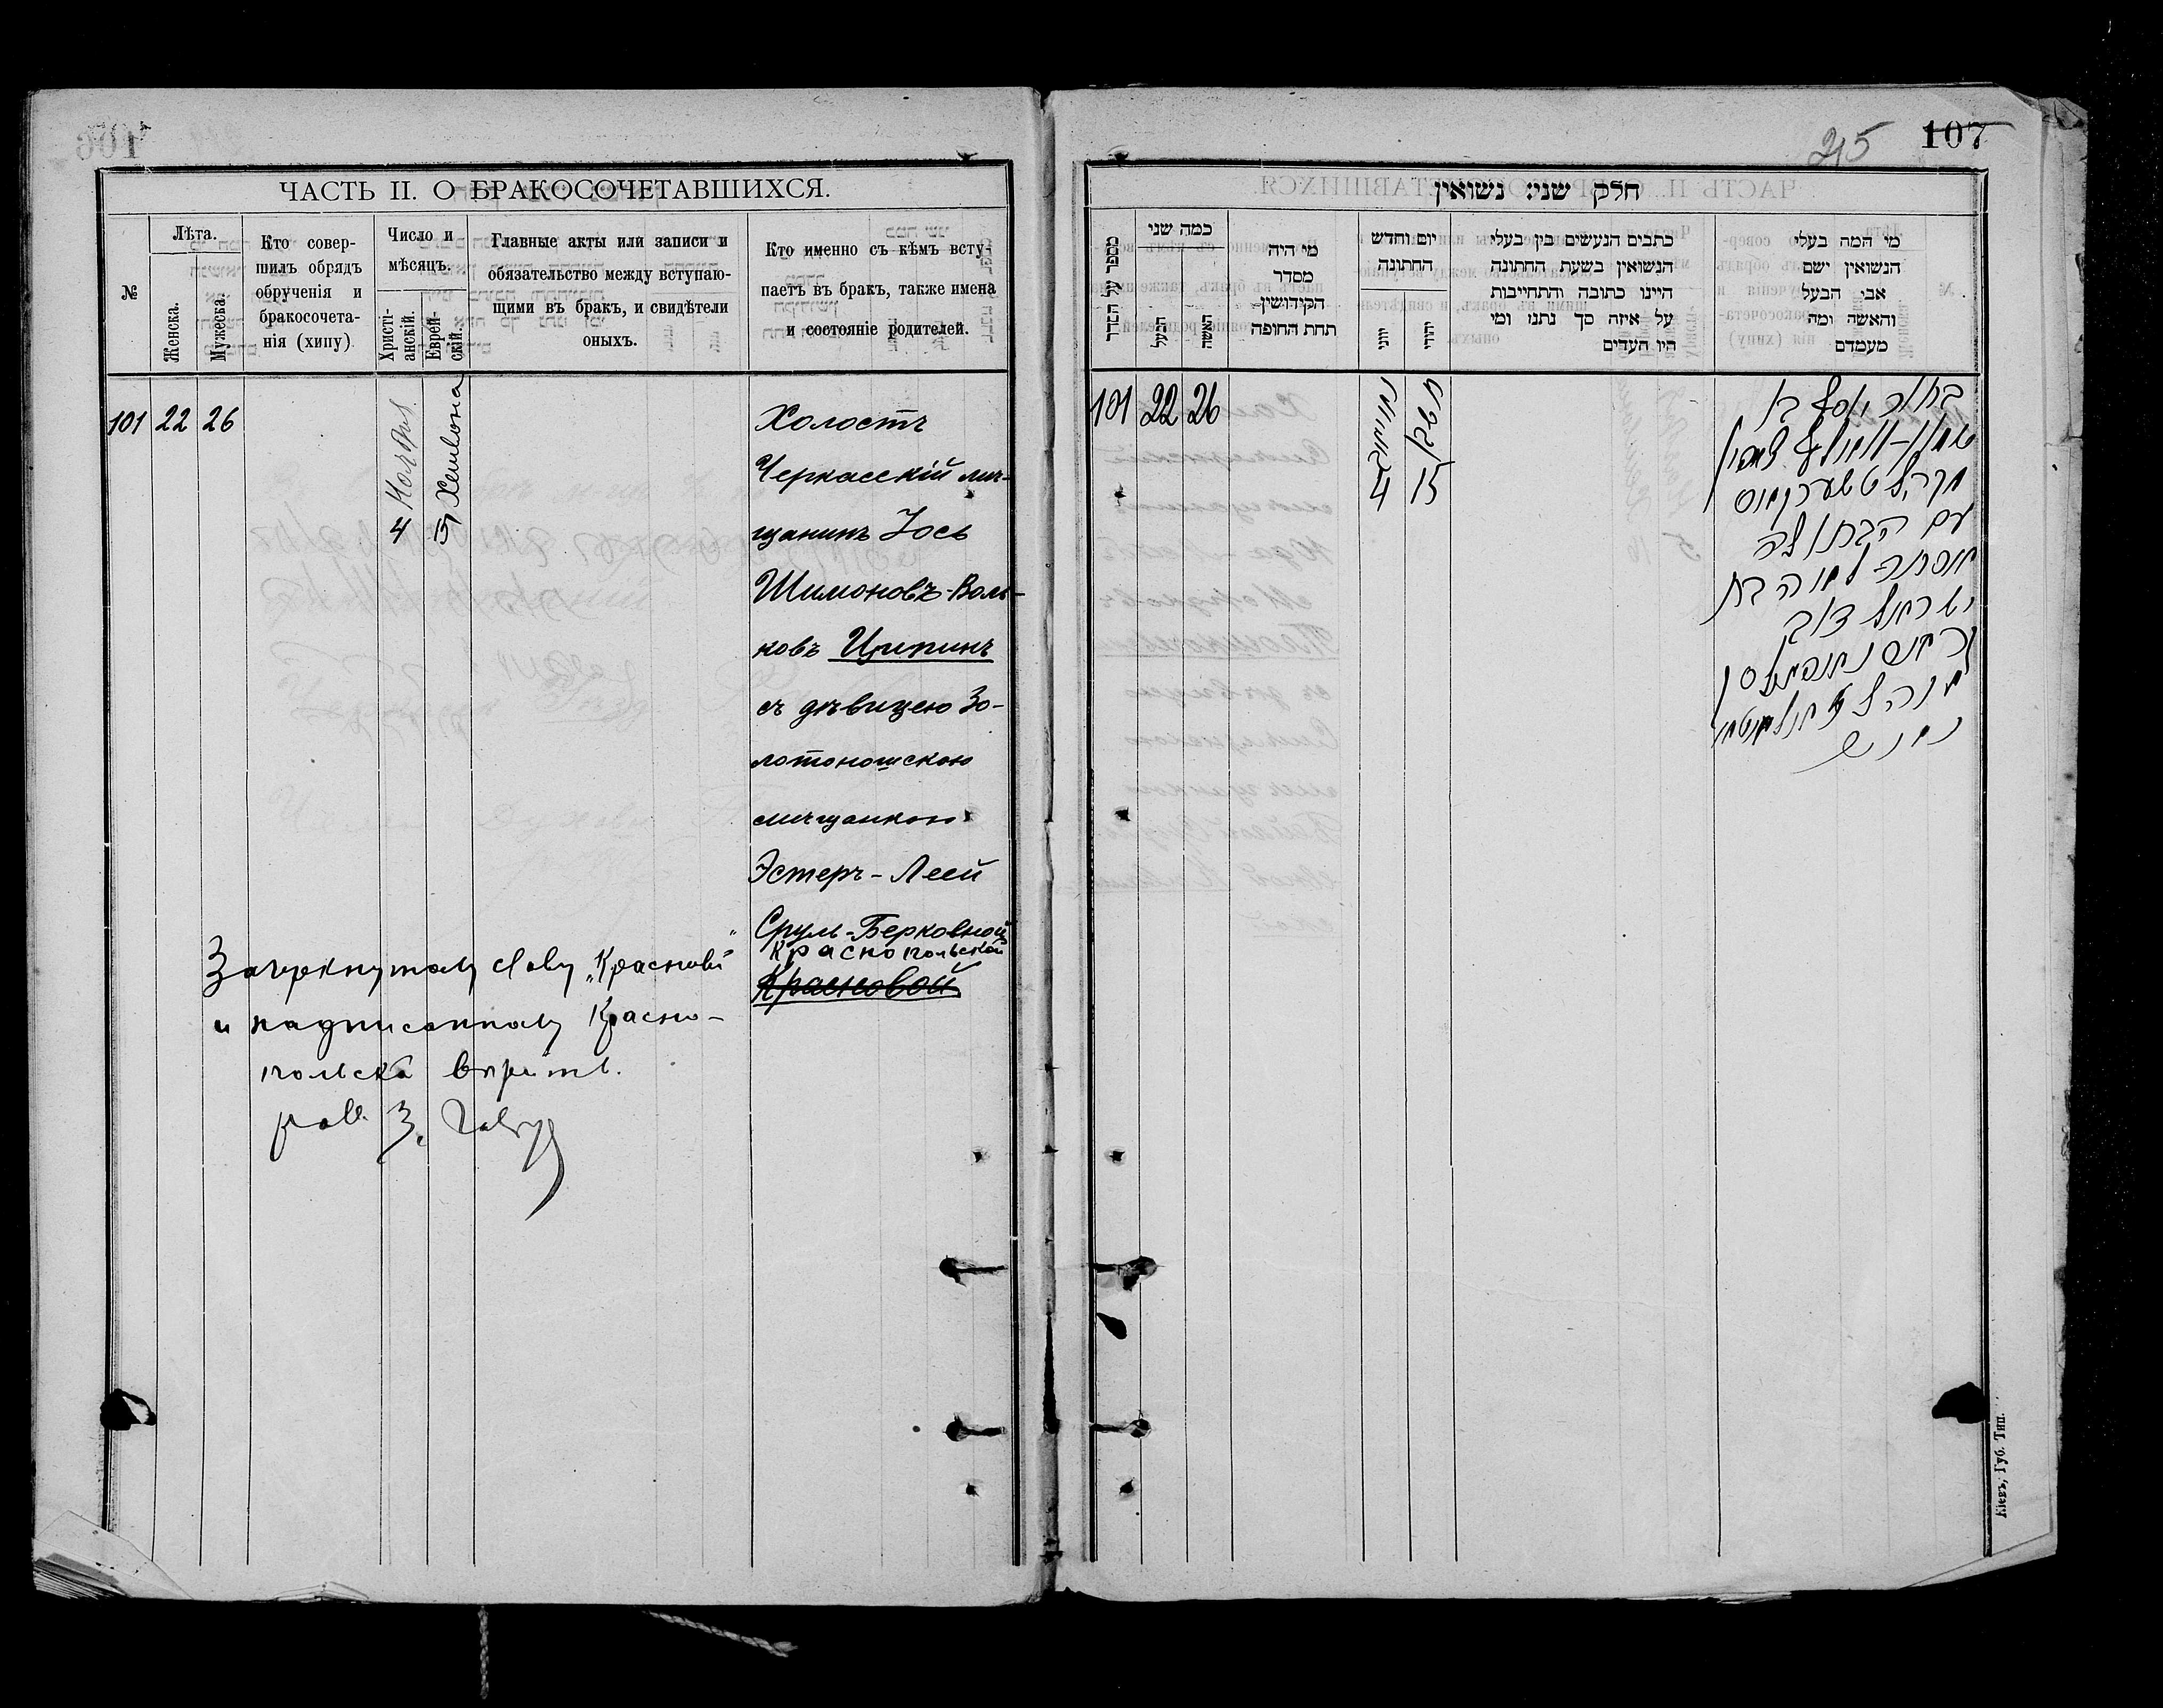 ЧАСТЬ II. О БРАКОСОЧЕТАВШИХСЯ.
№
Лѣта.
Женска.
Мужеска.
Кто совер-
шилъ обрядъ
обрученія и
бракосочета-
нія (хипу)
Число и
мѣсяцъ.
Христі-
анскій.
Еврей-
скій.
Главные акты или записи и
обязательство между вступаю-
щими въ бракъ, и свидѣтели
оныхъ.
Кто именно съ кѣмъ всту-
паетъ въ бракъ, также имена
и состояніе родителей.
101 22 26
4
15 Хешвона
Холостъ
Черкасскій мѣ-
щанинъ Іось
Шимоновъ-Воль-
ковъ Ципинъ
съ дѣвицею Зо-
лотоношскою
мѣщанкою
Эстеръ-Леей
Сруль-Берковной
Краснопольской
Красновой
Зачеркнутому слову „Красновой"
и надписанному Красно-
польской вѣрить.
рав. З.
215 107
חלק שני: נשואין
מספר על הסדר
כמה שני
הבעל
האשה
מי היה
מסדר
הקידושין
תחת החופה
יום וחדש
החתונה
יוני
יהודי
כתבים הנעשים בין בעלי
הנשואין בשעת החתונה
היינו כתובה והתחייבות
על איזה סך נתנו ומי
היו העדים
מי המה בעלי
הנשואין ושם
אבי הבעל
והאשה ומה
מעמדם
101 22 26
4
15
בחור יוסף בן
מקהל טשערקאס
עם הבתולה
אסתר לאה בת
ישראל דוב
Кіевъ, Губ. Тип.